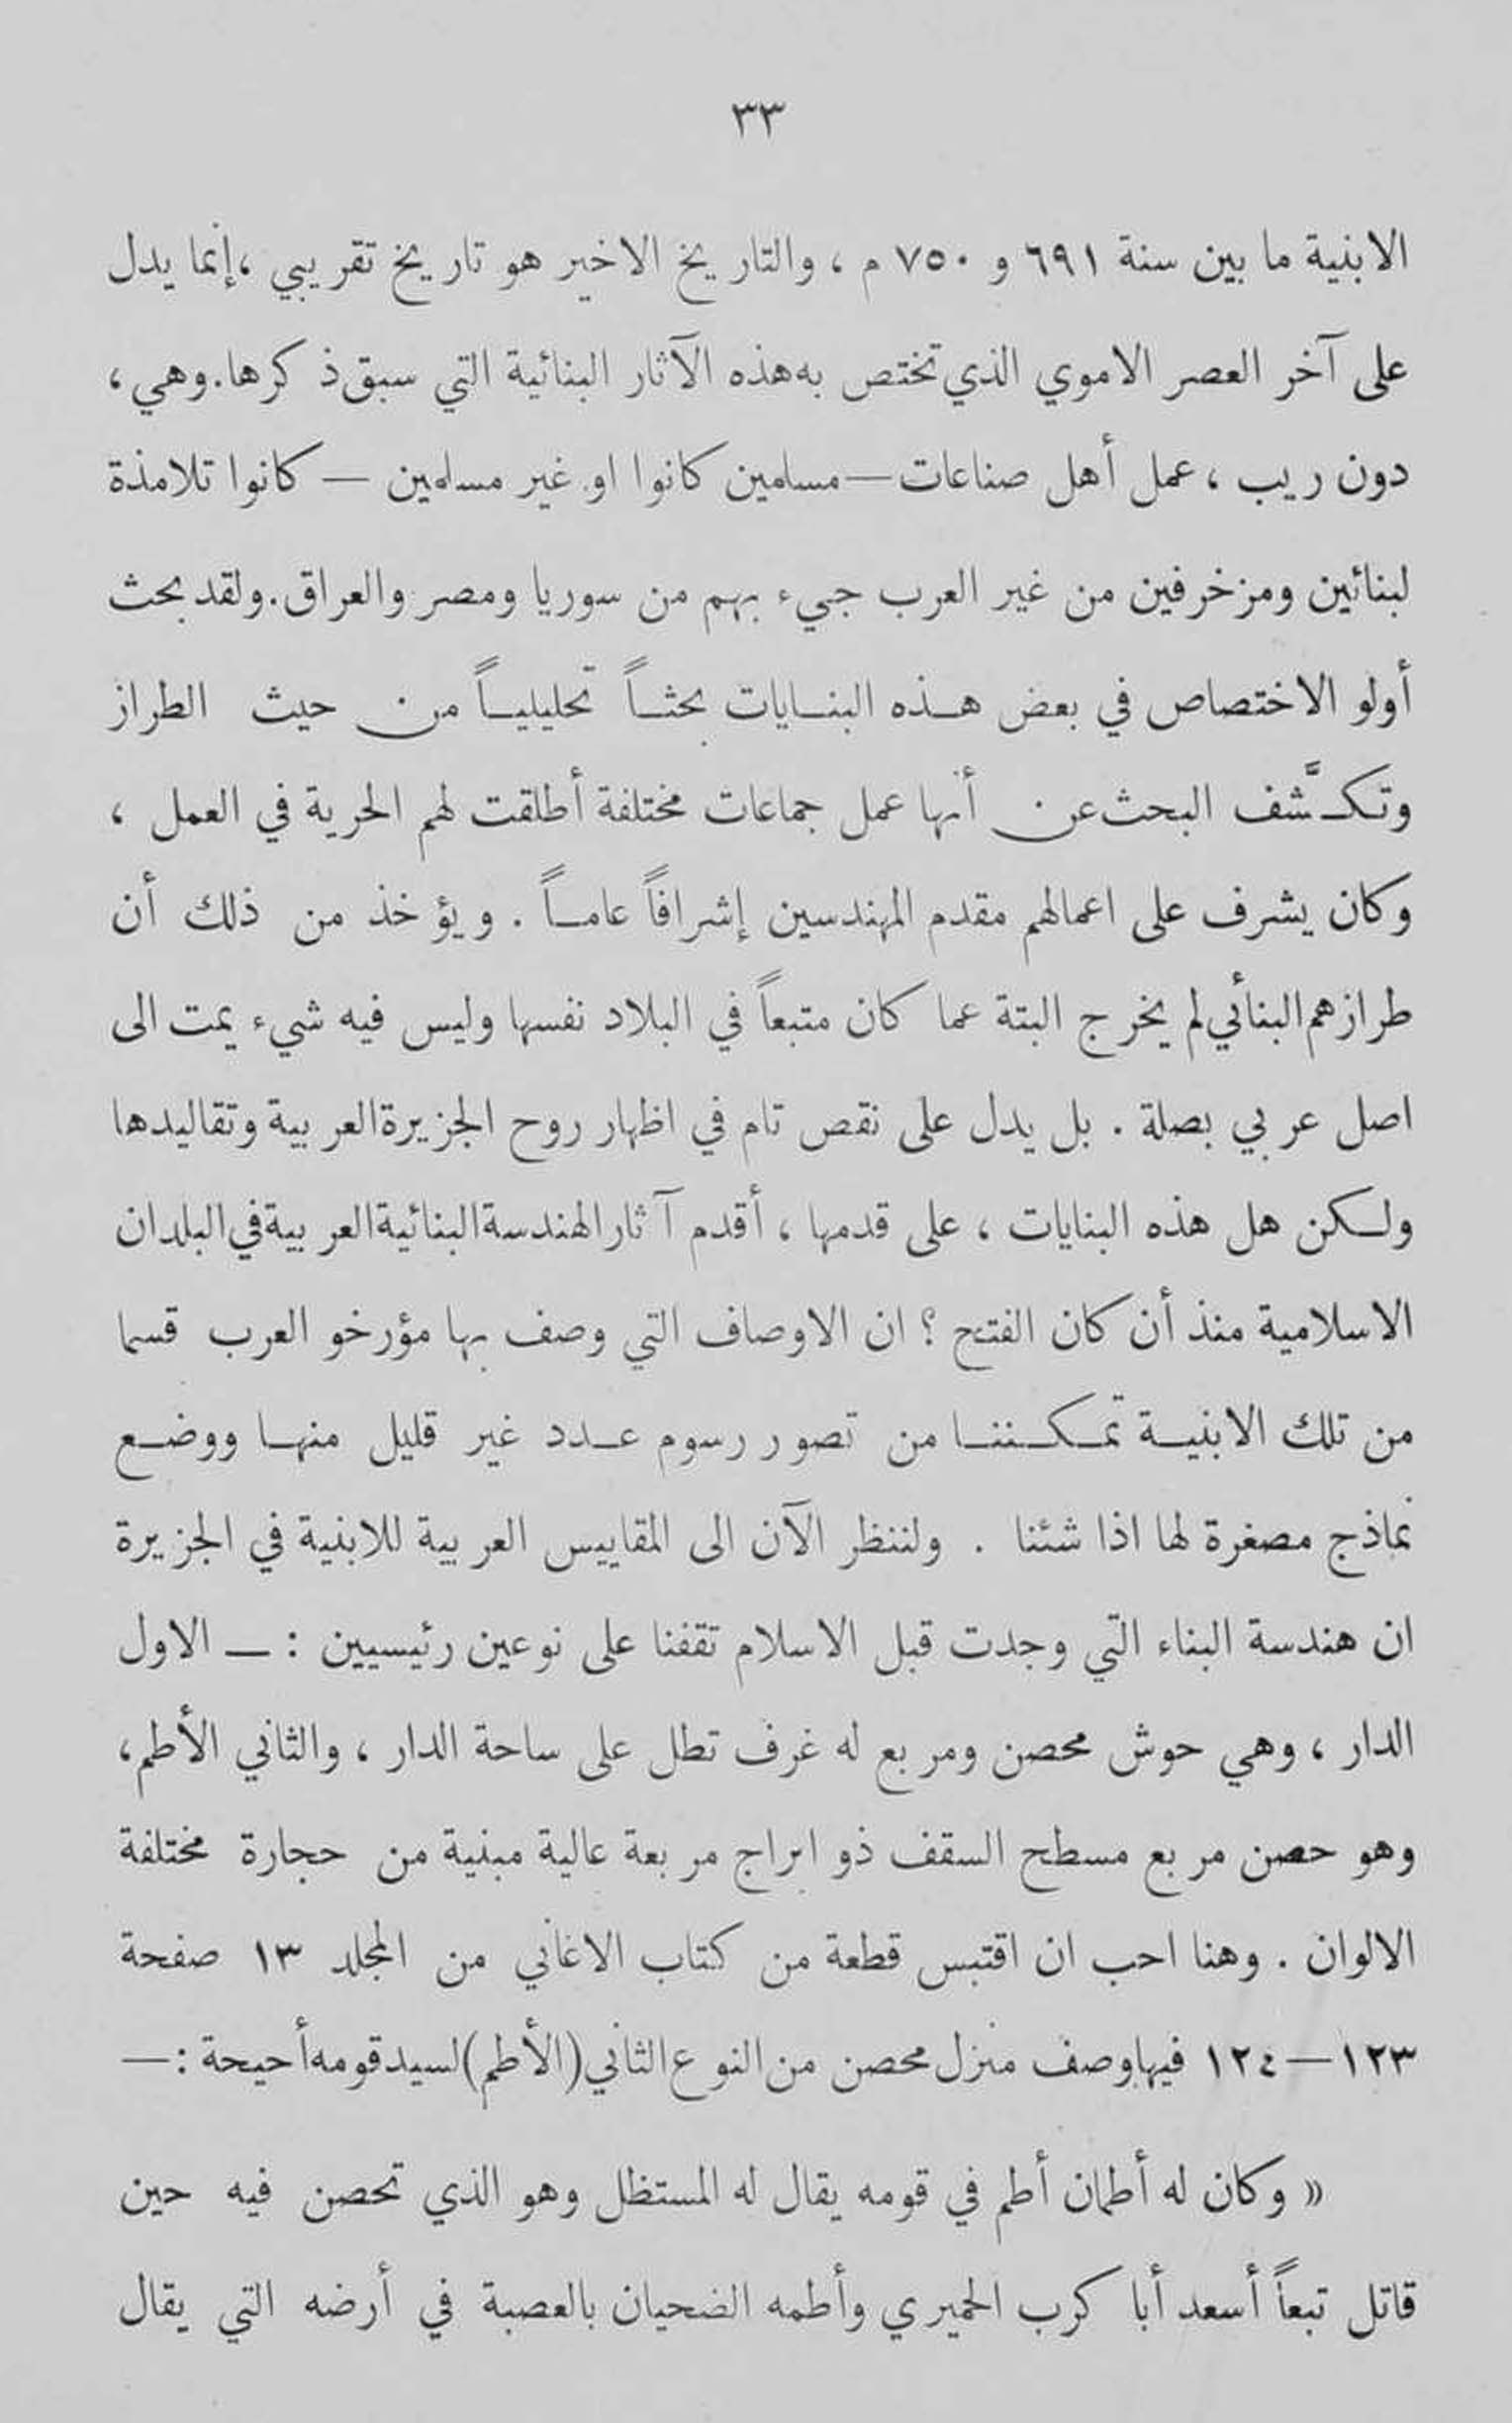 ٣٣
الابنية ما بين سنة ٦٩١ و ٧٥٠ م ، والتاريخ الاخير هو تاريخ تقريبي ، إنما يدل
على آخر العصر الاموي الذي تختص به هذه الآثار البنائية التي سبق ذكرها. وهي ،
دون ريب ، عمل أهل صناعات — مسلمين كانوا او غير مسلمين — كانوا تلامذة
لبنائين ومزخرفين من غير العرب جيء بهم من سوريا ومصر والعراق. ولقد بحث
أولو الاختصاص في بعض هذه البنايات بحثاً تحليلياً من حيث الطراز
وتكشَّف البحث عن أنها عمل جماعات مختلفة أطلقت لهم الحرية في العمل ،
وكان يشرف على اعمالهم مقدم المهندسين إشرافاً عاماً . ويؤخذ من ذلك أن
طرازهم البنائي لم يخرج البتة عما كان متبعاً في البلاد نفسها وليس فيه شيء يمت الى
اصل عربي بصلة . بل يدل على نقص تام في اظهار روح الجزيرة العربية وتقاليدها
ولكن هل هذه البنايات ، على قدمها ، أقدم آثار الهندسة البنائية العربية في البلدان
الاسلامية منذ أن كان الفتح ؟ ان الاوصاف التي وصف بها مؤرخو العرب قسما
من تلك الابنية تمكننا من تصور رسوم عدد غير قليل منها ووضع
نماذج مصغرة لها اذا شئنا . ولننظر الآن الى المقاييس العربية للابنية في الجزيرة
ان هندسة البناء التي وجدت قبل الاسلام تقفنا على نوعين رئيسيين : — الاول
الدار ، وهي حوش محصن ومربع له غرف تطل على ساحة الدار ، والثاني الأطم ،
وهو حصن مربع مسطح السقف ذو ابراج مربعة عالية مبنية من حجارة مختلفة
الالوان . وهنا احب ان اقتبس قطعة من كتاب الاغاني من المجلد ١٣ صفحة
١٢٣—١٢٤ فيها وصف منزل محصن من النوع الثاني (الأطم) لسيد قومه أحيحة : —
« وكان له أطمان أطم في قومه يقال له المستظل وهو الذي تحصن فيه حين
قاتل تبعاً أسعد أبا كرب الحميري وأطمه الضحيان بالعصبة في أرضه التي يقال